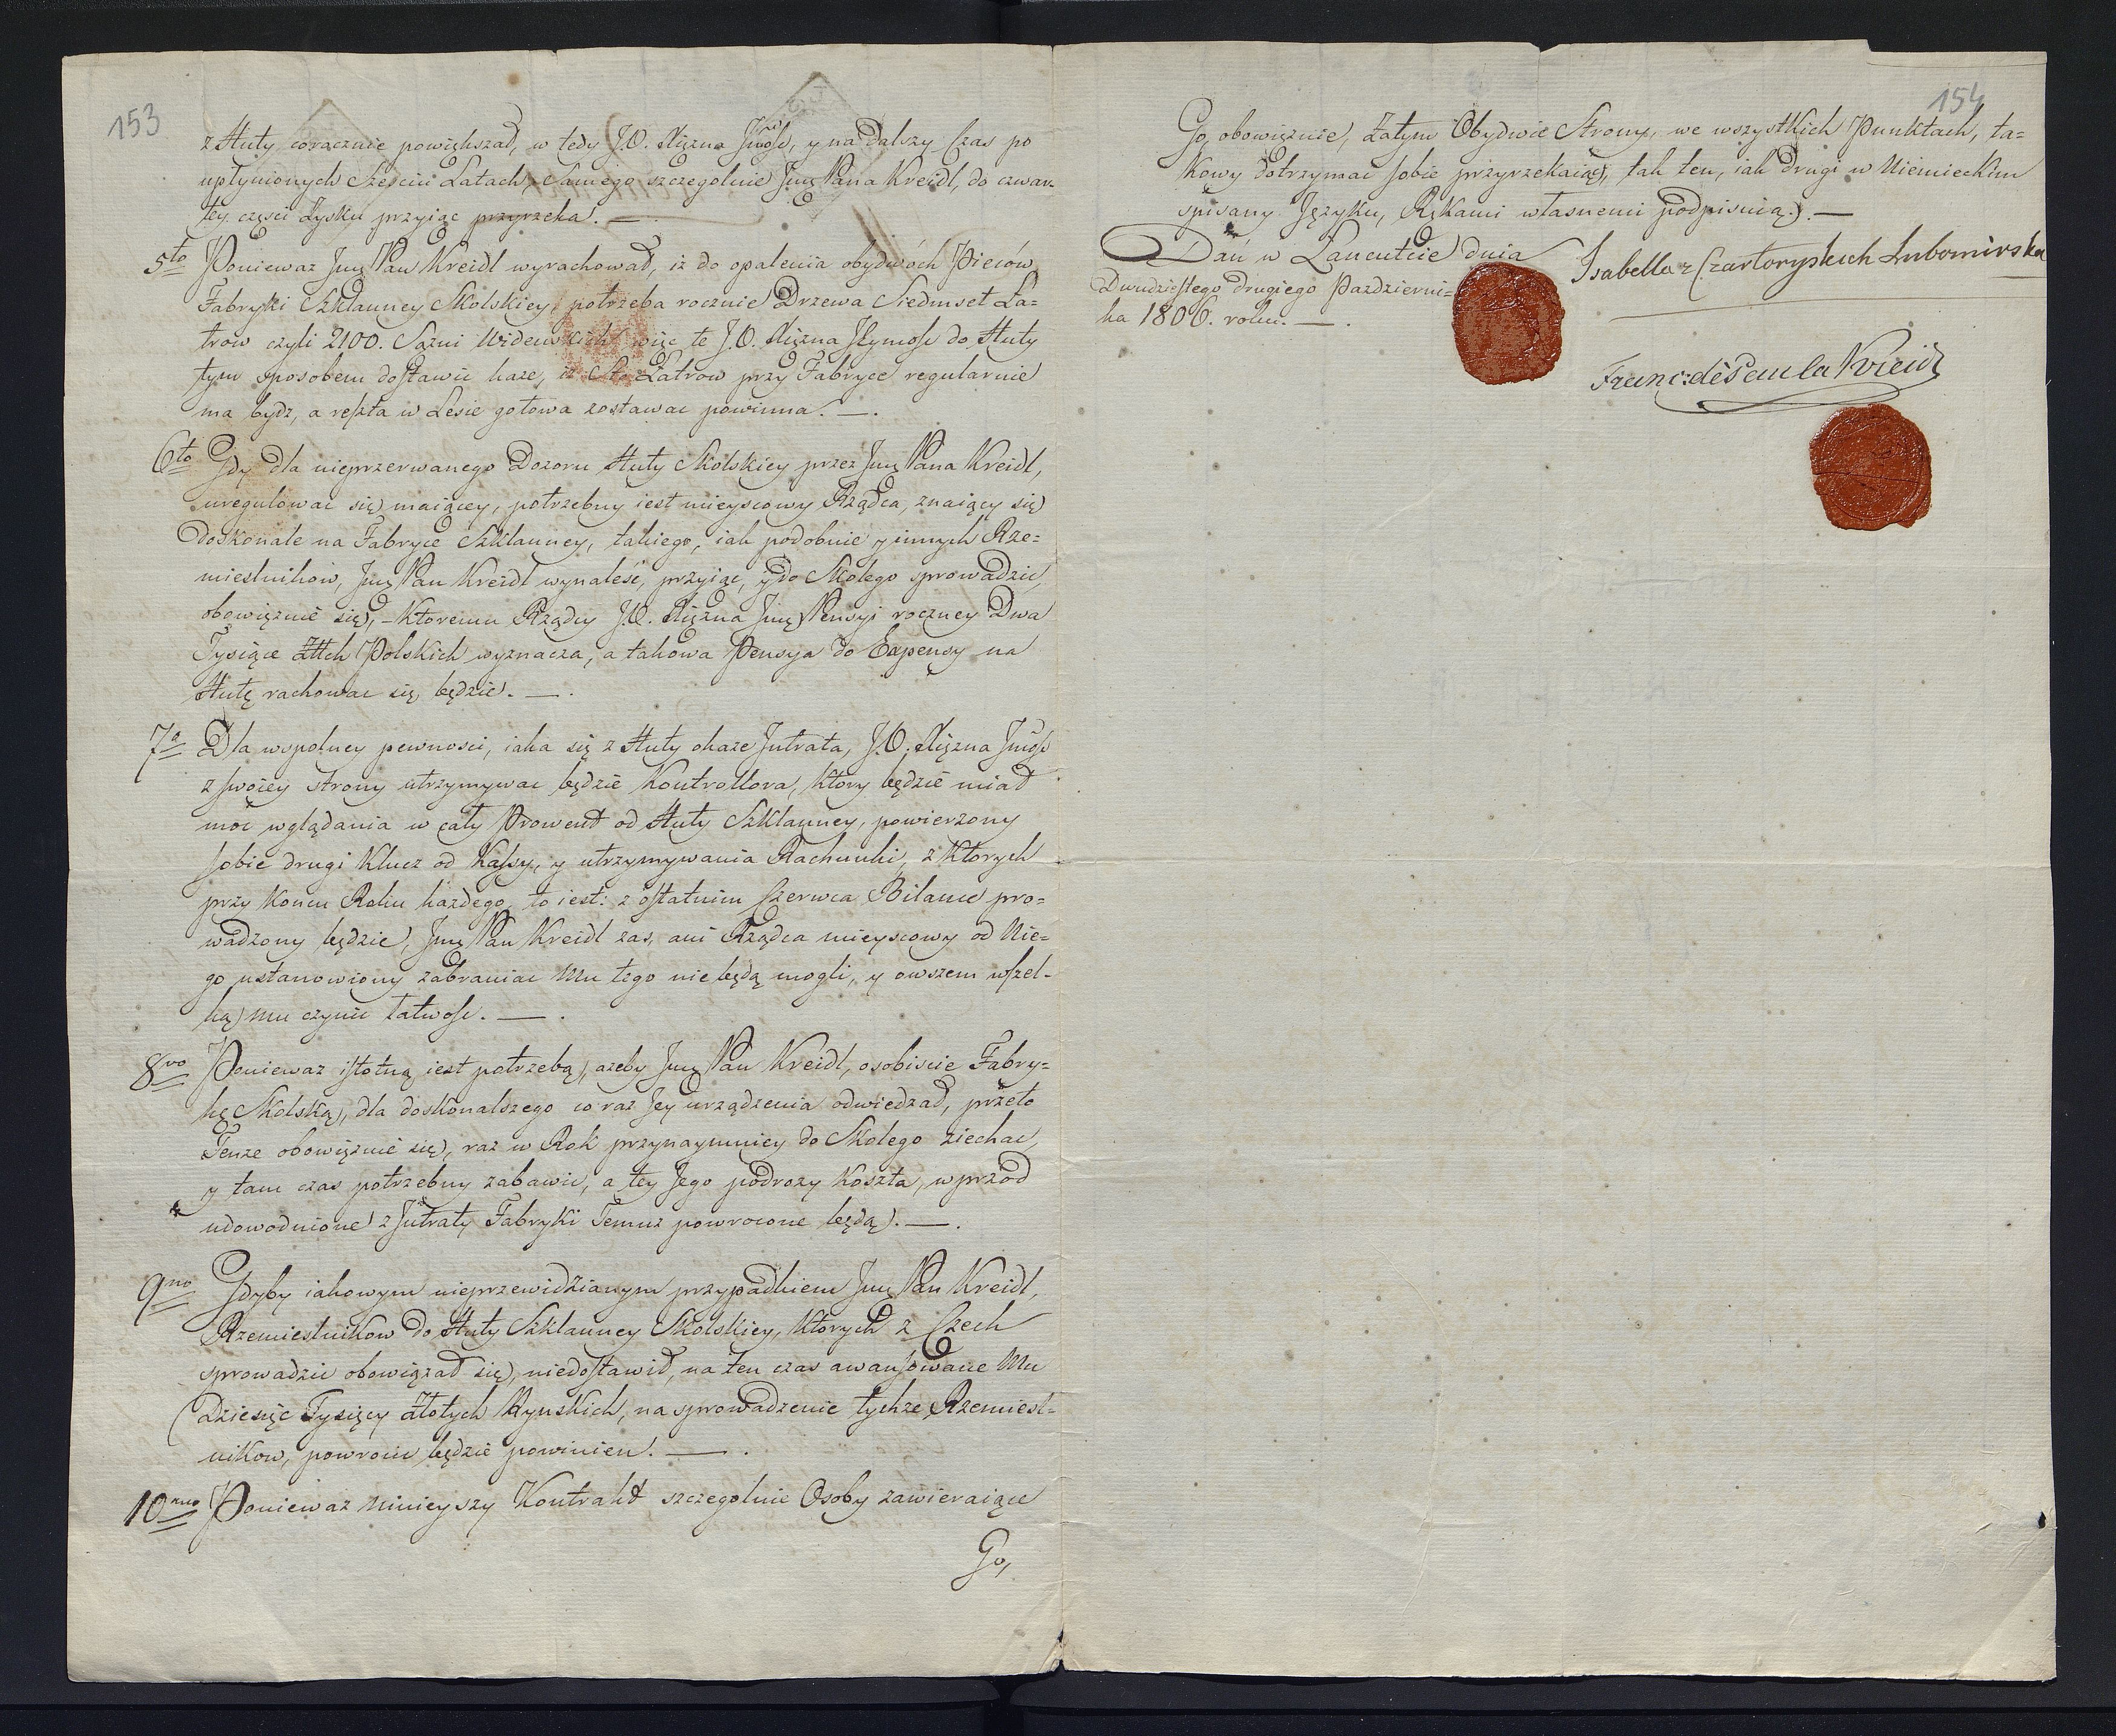 153
z Huty corocznie powiększał, w tedy J.O. Xiężna Jmość, y na dalszy Czas po
upłynionych Sześciu Latach, Samego szczegolnie Jmę Pana Kreidl, do czwar-
tey części Zysku przyiąc przyrzeka. —.
5to Poniewaz Jmę Pan Kreidl wyrachował, iz do opalenia obydwóch Pieców
Fabryki Szklanney Skolskiey, potrzeba rocznie Drzewa Siedmset La=
trow czyli 2100. Sązni Widenskich więc te J.O. Xiężna Jeymość do Huty
tym sposobem dostawić kaze, iz Sto Latrow przy Fabryce regularnie
ma bydz, a reszta w Lesie gotowa zostawac powinna. —.
6to Gdy dla nieprzerwanego Dozoru Huty Skolskiey przez Jmę Pana Kreidl,
uregulowac się maiącey, potrzebny iest mieyscowy Rządca, znaiący się
doskonale na Fabryce Szklanney, takiego, iak podobnie y innych Rze=
mieslnikow, Jmę Pan Kreidl wynaleść, przyiąc, y do Skolego sprowadzic,
obowięzuie się, – Ktoremu Rządcy J.O. Xiężna Jmę Pensyi roczney Dwa
Tysiące Złtch Polskich wyznacza, a takowa Pensya do Expensy na
Hutę rachowac się będzie. —.
7o Dla wspolney pewnosci, iaka się z Huty okaze Jntrata, J.O. Xiężna Jmość
z swoiey strony utrzymywac będzie Kontrollora, Ktory będzie miał
moc wglądania w cały Prowent od Huty Szklanney, powierzony
sobie drugi Klucz od Kassy, y utrzymywania Rachunki, z Ktorych
przy Koncu Roku kazdego, to iest: z ostatnim Czerwca Bilance pro=
wadzony będzie, Jmę Pan Kreidl zas, ani Rządca mieyscowy od Nie=
go ustanowiony zabraniac Mu tego nie będą mogli, y owszem wszel-
ką mu czynic łatwość. —.
8vo Poniewaz istotną iest potrzebą, azeby Jmę Pan Kreidl, osobiscie Fabry=
kę Skolską, dla doskonalszego coraz Jey urządzenia odwiedzał, przeto
Tenze obowięzuie się, raz w Rok przynaymniey do Skolego ziechac,
y tam czas potrzebny zabawic, a tey Jego podrozy Koszta, w przod
udowodnione z Jntraty Fabryki Temuz powrocone będą. —.
9no Gdyby iakowym nieprzewidzianym przypadkiem Jmę Pan Kreidl,
Rzemieslnikow do Huty Szklanney Skolskiey, Ktorych z Czech
sprowadzic obowiązał się, niedostawił, na ten czas awansowane Mu
Dziesięc Tysięcy Złotych Ryńskich, na sprowadzenie tychze Rzemiesl=
nikow, powrocic będzie powinien. —.
10mo Poniewaz Ninieyszy Kontrakt szczegolnie Osoby zawieraiące
Go,
154
Go, obowięzuie, Zatym Obydwie Strony, we wszystkich Punktach, ta=
kowy dotrzymac sobie przyrzekaią, tak ten, iak drugi w Niemieckim
spisany Języku, Rękami własnemi podpisuią. —
Dan w Lancutcie dnia
Dwudziestego drugiego Pazdzierni=
ka 1806. roku. —.
Isabella z Czartoryskich Lubomirska
Franc: de Paula Kreidl